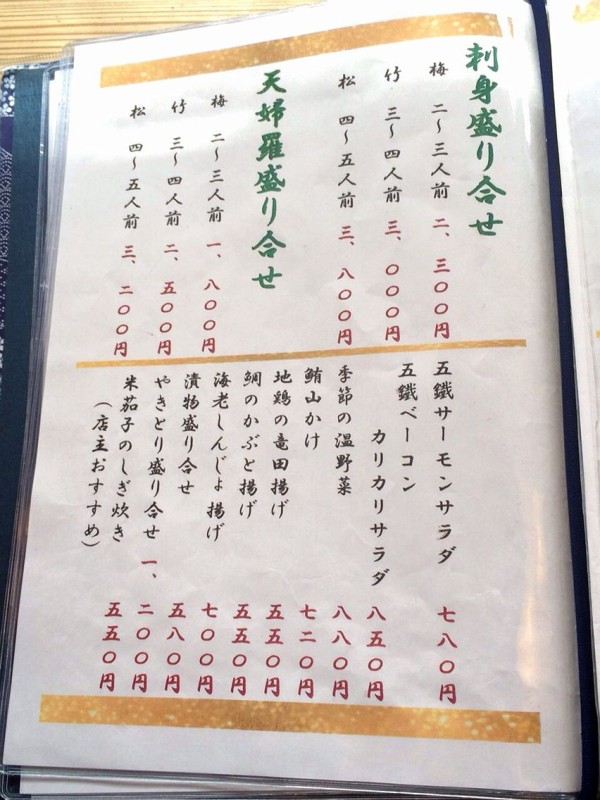 刺身盛り合せ
梅 二〜三人前 二、三〇〇円
竹 三〜四人前 三、〇〇〇円
松 四〜五人前 三、八〇〇円
天婦羅盛り合せ
梅 二〜三人前 一、八〇〇円
竹 三〜四人前 二、五〇〇円
松 四〜五人前 三、二〇〇円
五鐵サーモンサラダ 七八〇円
五鐵ベーコン
カリカリサラダ 八五〇円
季節の温野菜 八八〇円
鮪山かけ 七二〇円
地鶏の竜田揚げ 五五〇円
鯛のかぶと揚げ 五五〇円
海老しんじょ揚げ 七〇〇円
漬物盛り合せ 五八〇円
やきとり盛り合せ 一、二〇〇円
米茄子のしぎ炊き 五五〇円
(店主おすすめ)